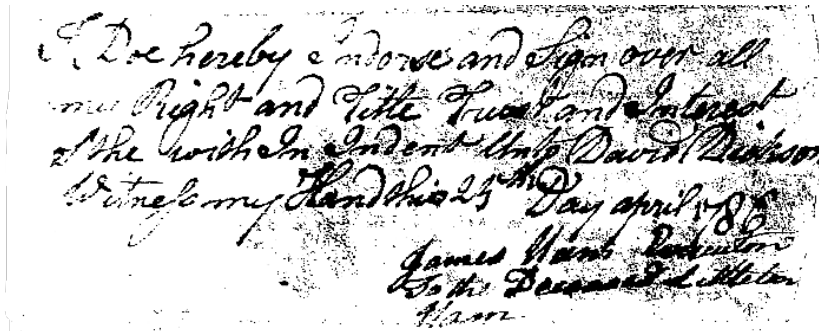 I Doe hereby Indorse and Sign over all
my Right and Title Trust and Interest
of the withIn Indent Unto David Dickson
Witness my Hand this 25th Day april 1786
James Ham Executor
To the Deceased Littleton
Ham